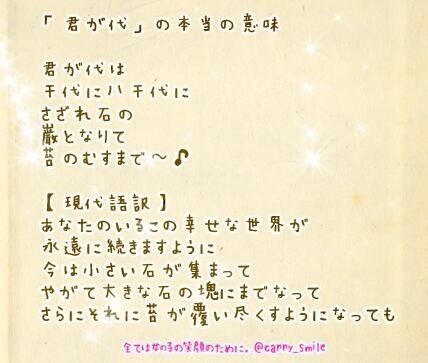 「君が代」の本当の意味
君が代は
千代に八千代に
さざれ石の
巌となりて
苔のむすまで～♪
【現代語訳】
あなたのいるこの幸せな世界が
永遠に続きますように
今は小さい石が集まって
やがて大きな石の塊にまでなって
さらにそれに苔が覆い尽くすようになっても
全ては女の子の笑顔のために。@canny_smile